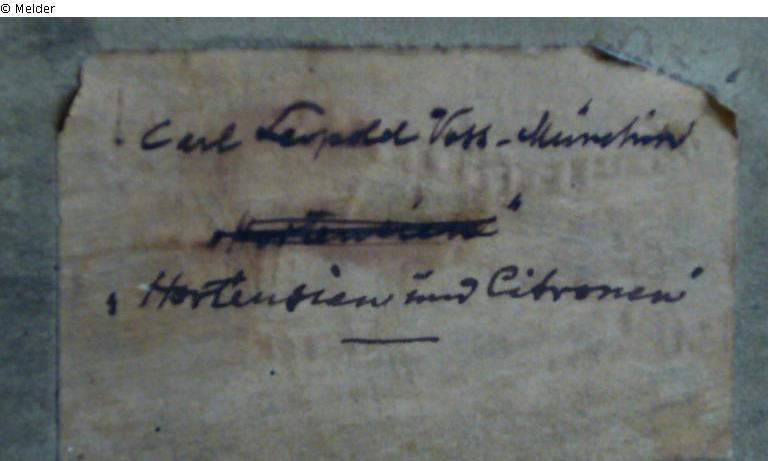 © Melder
Carl Leopold Voss - München
„Hortensien"
„Hortensien und Citronen"